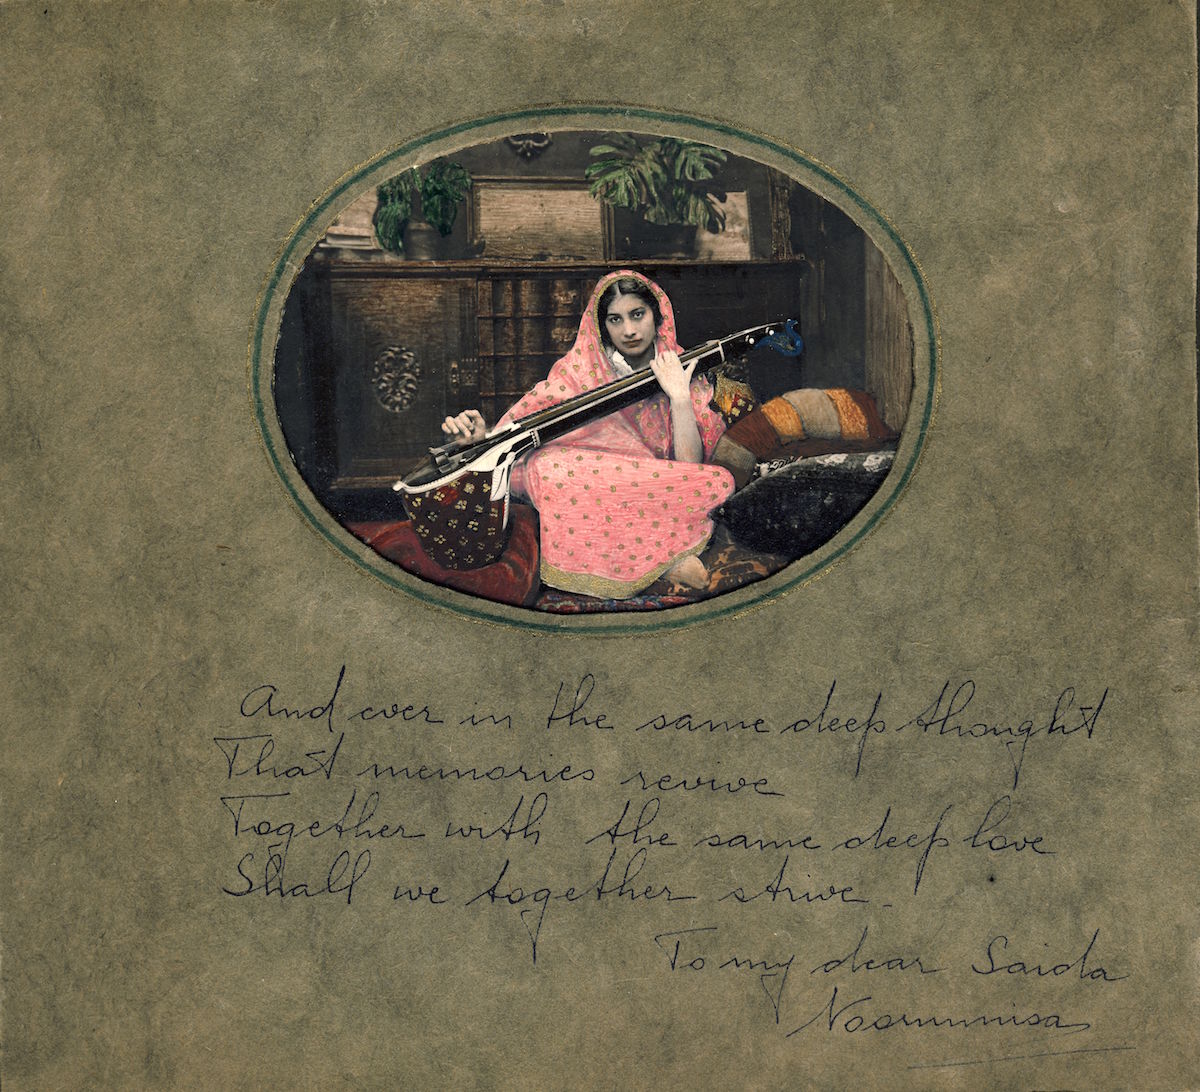 And ever in the same deep thought
That memories revive
Together with the same deep love
Shall we together strive.
To my dear Saida
Noorunnisa